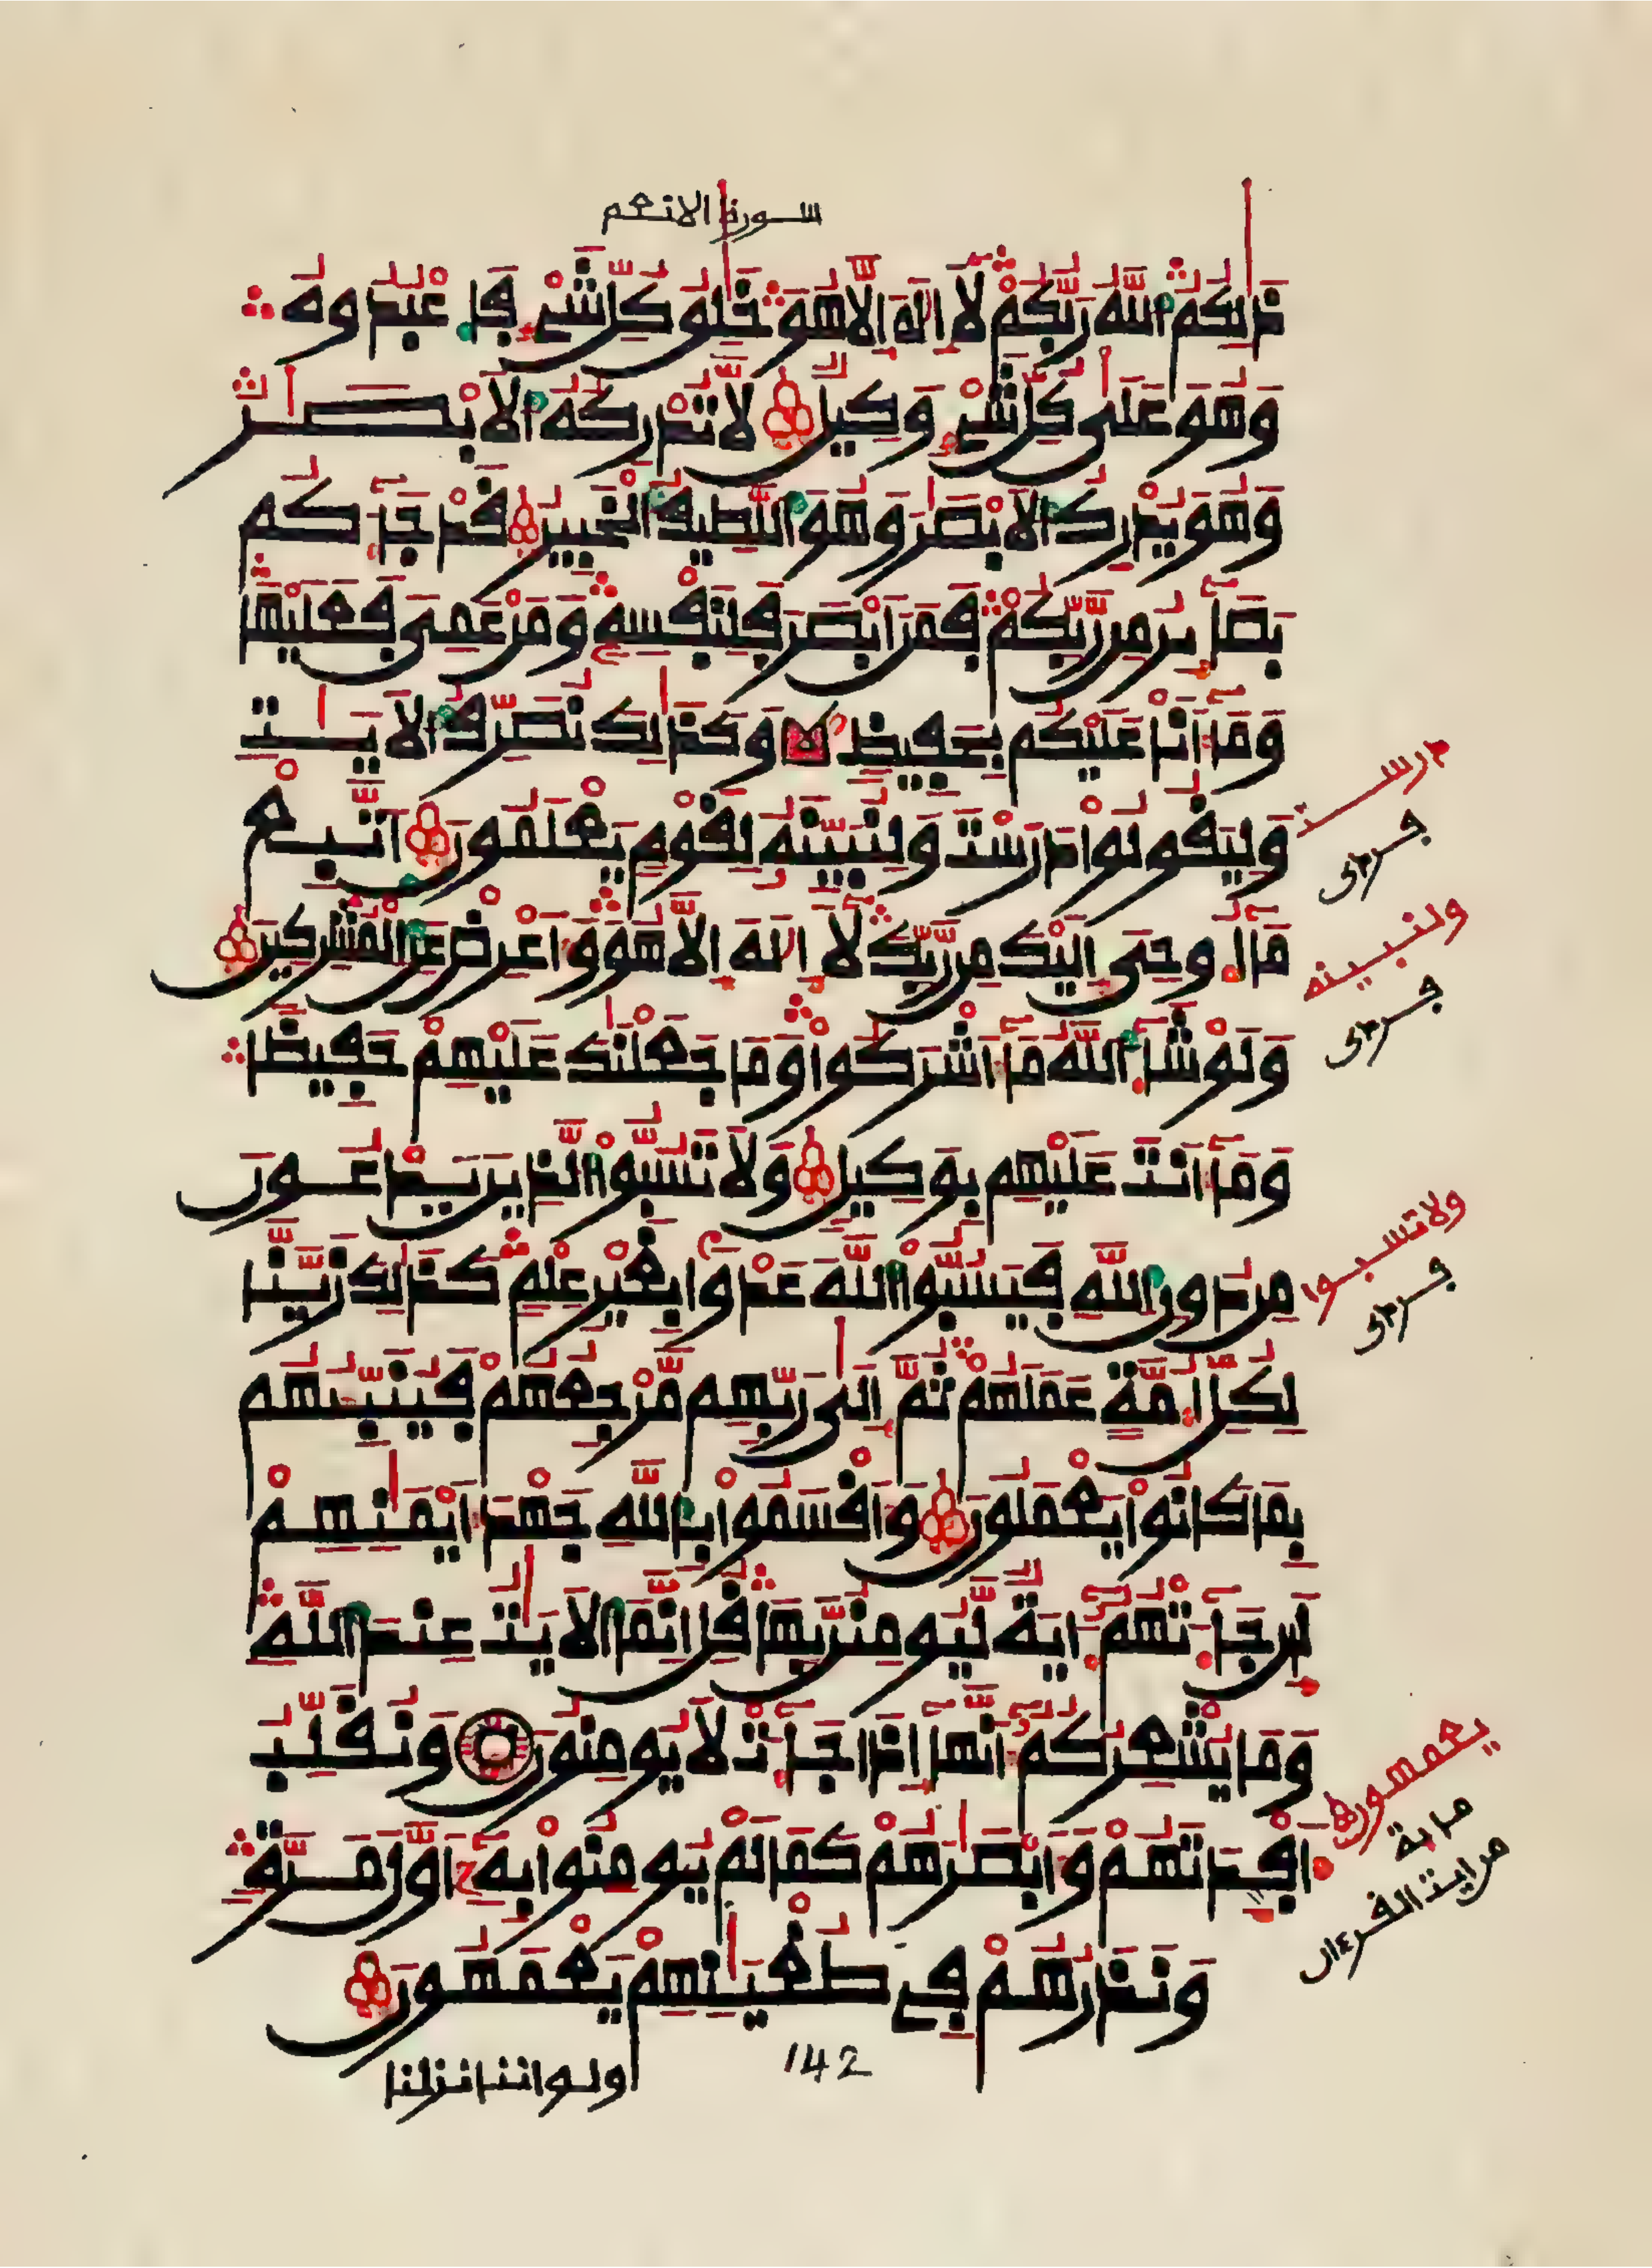 سورة الانعم
ذَٰلِكُمُ اللَّهُ رَبُّكُمْ لَا إِلَٰهَ إِلَّا هُوَ خَٰلِقُ كُلِّ شَيْءٍ فَاعْبُدُوهُ
وَهُوَ عَلَىٰ كُلِّ شَيْءٍ وَكِيلٌ لَا تُدْرِكُهُ الْأَبْصَٰرُ
وَهُوَ يُدْرِكُ الْأَبْصَٰرَ وَهُوَ اللَّطِيفُ الْخَبِيرُ قَدْ جَآءَكُم
بَصَآئِرُ مِن رَّبِّكُمْ فَمَنْ أَبْصَرَ فَلِنَفْسِهِ وَمَنْ عَمِيَ فَعَلَيْهَا
وَمَآ أَنَا عَلَيْكُم بِحَفِيظٍ وَكَذَٰلِكَ نُصَرِّفُ الْأَيَٰتِ
وَلِيَقُولُوا دَرَسْتَ وَلِنُبَيِّنَهُ لِقَوْمٍ يَعْلَمُونَ اتَّبِعْ
مَآ أُوحِيَ إِلَيْكَ مِن رَّبِّكَ لَآ إِلَٰهَ إِلَّا هُوَ وَأَعْرِضْ عَنِ الْمُشْرِكِينَ
وَلَوْ شَآءَ اللَّهُ مَآ أَشْرَكُوا وَمَا جَعَلْنَٰكَ عَلَيْهِمْ حَفِيظًا
وَمَآ أَنتَ عَلَيْهِم بِوَكِيلٍ وَلَا تَسُبُّوا الَّذِينَ يَدْعُونَ
مِن دُونِ اللَّهِ فَيَسُبُّوا اللَّهَ عَدْوًا بِغَيْرِ عِلْمٍ كَذَٰلِكَ زَيَّنَّا
لِكُلِّ أُمَّةٍ عَمَلَهُمْ ثُمَّ إِلَىٰ رَبِّهِم مَّرْجِعُهُمْ فَيُنَبِّئُهُم
بِمَا كَانُوا يَعْمَلُونَ وَأَقْسَمُوا بِاللَّهِ جَهْدَ أَيْمَٰنِهِمْ
لَئِن جَآءَتْهُمْ ءَايَةٌ لَّيُومِنُنَّ بِهَا قُلْ إِنَّمَا الْأَيَٰتُ عِندَ اللَّهِ
وَمَا يُشْعِرُكُمْ أَنَّهَآ إِذَا جَآءَتْ لَا يُومِنُونَ وَنُقَلِّبُ
أَفْـِٔدَتَهُمْ وَأَبْصَٰرَهُمْ كَمَا لَمْ يُومِنُوا بِهِ أَوَّلَ مَرَّةٍ
وَنَذَرُهُمْ فِي طُغْيَٰنِهِمْ يَعْمَهُونَ
142
ولو اننا نزلنا
درست
ولنبينه
ولا تسبوا
يعمهون